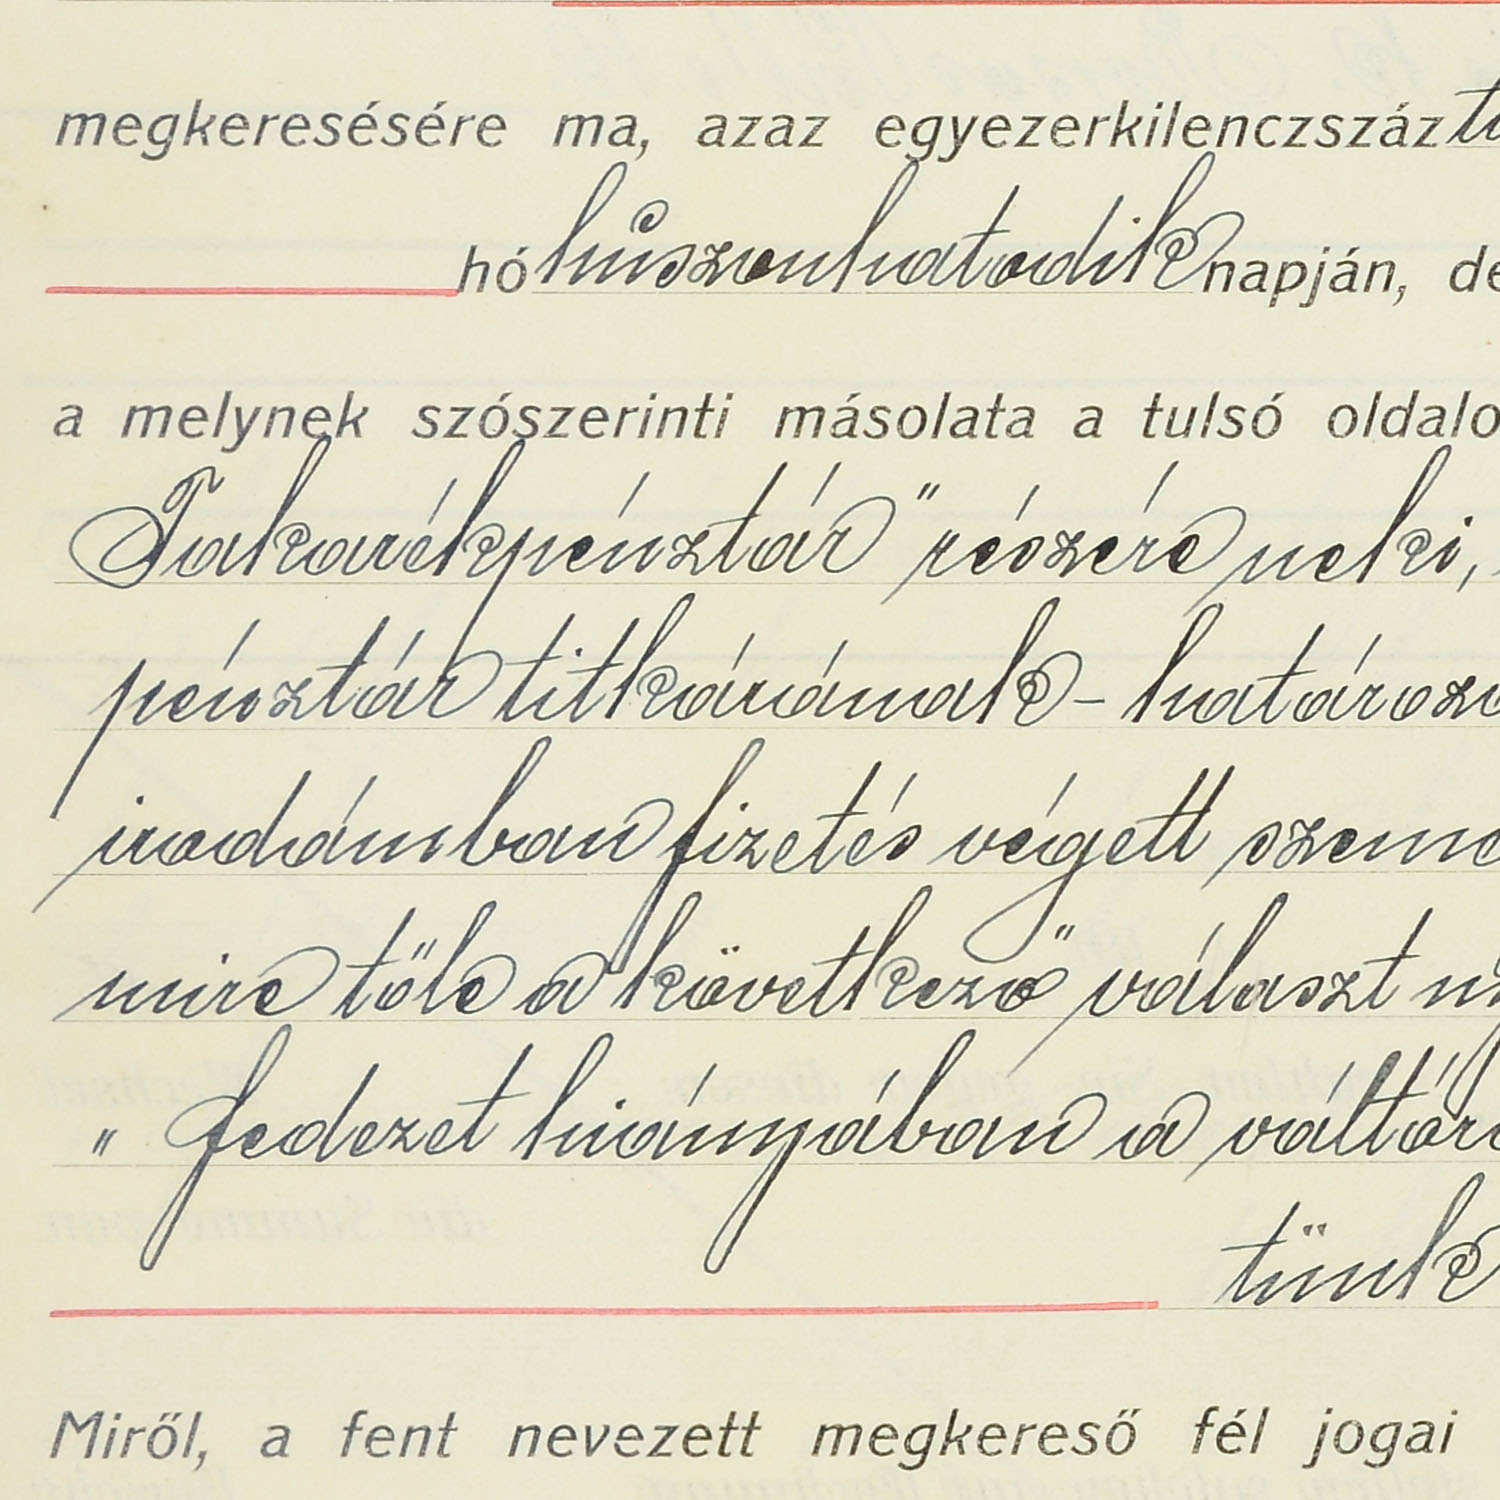 megkeresésére ma, azaz egyezerkilenczszáz
hó huszonhatodik napján, de
a melynek szószerinti másolata a tulsó oldalo
Takarékpénztár" részére neki,
pénztár titkárának - határozo
irodámban fizetés végett szeme
mire tőle a következő választ n
" Fedezet hiányában a váltór
tünk
Miről, a fent nevezett megkereső fél jogai